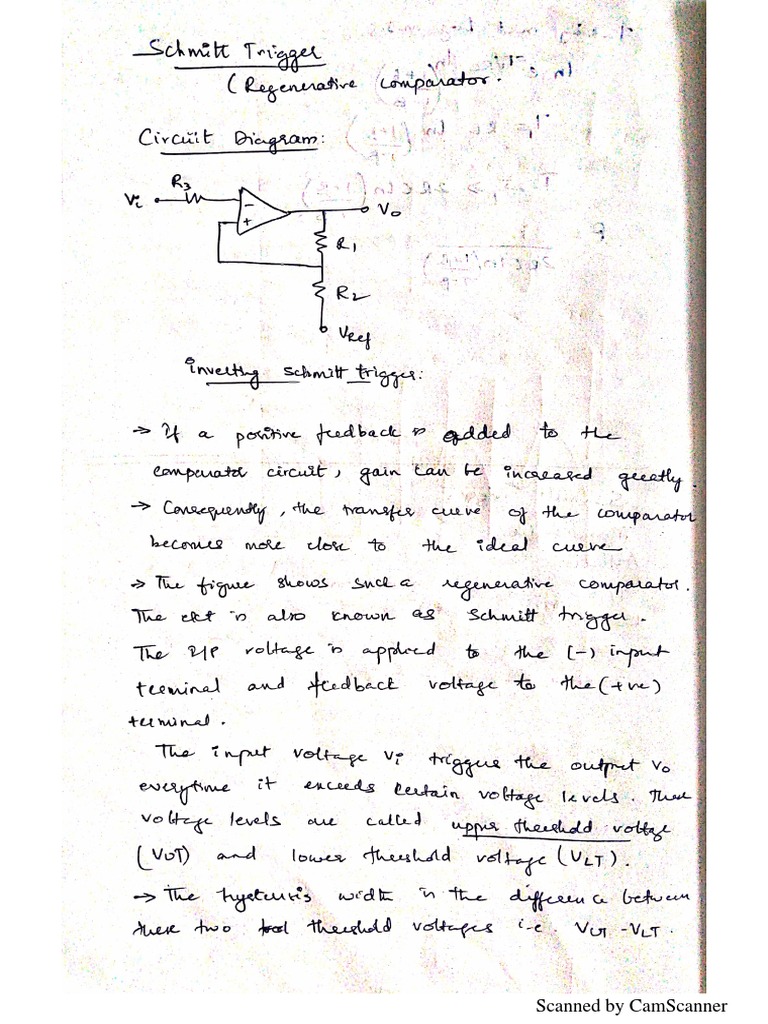 Schmitt Trigger
(Regenerative comparator.
Circuit Diagram:
R3
Vi
-
+
Vo
R1
R2
VRef
inverting schmitt trigger:
→ If a positive feedback is added to the
comparator circuit, gain can be increased greatly.
→ Consequently, the transfer curve of the comparator
becomes more close to the ideal curve
→ The figure shows such a regenerative comparator.
The ckt is also known as Schmitt trigger.
The I/P voltage is applied to the (-) input
terminal and feedback voltage to the (+ve)
terminal.
The input voltage Vi triggers the output Vo
everytime it exceeds certain voltage levels. These
voltage levels are called upper threshold voltage
(VUT) and lower threshold voltage (VLT).
→ The hysterisis width is the difference between
these two threshold voltages i.e. VUT - VLT.
Scanned by CamScanner